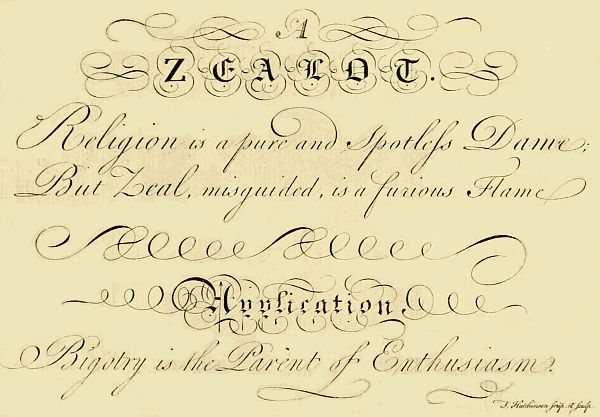 A
ZEALOT.
Religion is a pure and spotless Dame;
But Zeal, misguided, is a furious Flame
Application.
Bigotry is the Parent of Enthusiasm.
J. Hutchinson scrip. et sculp.